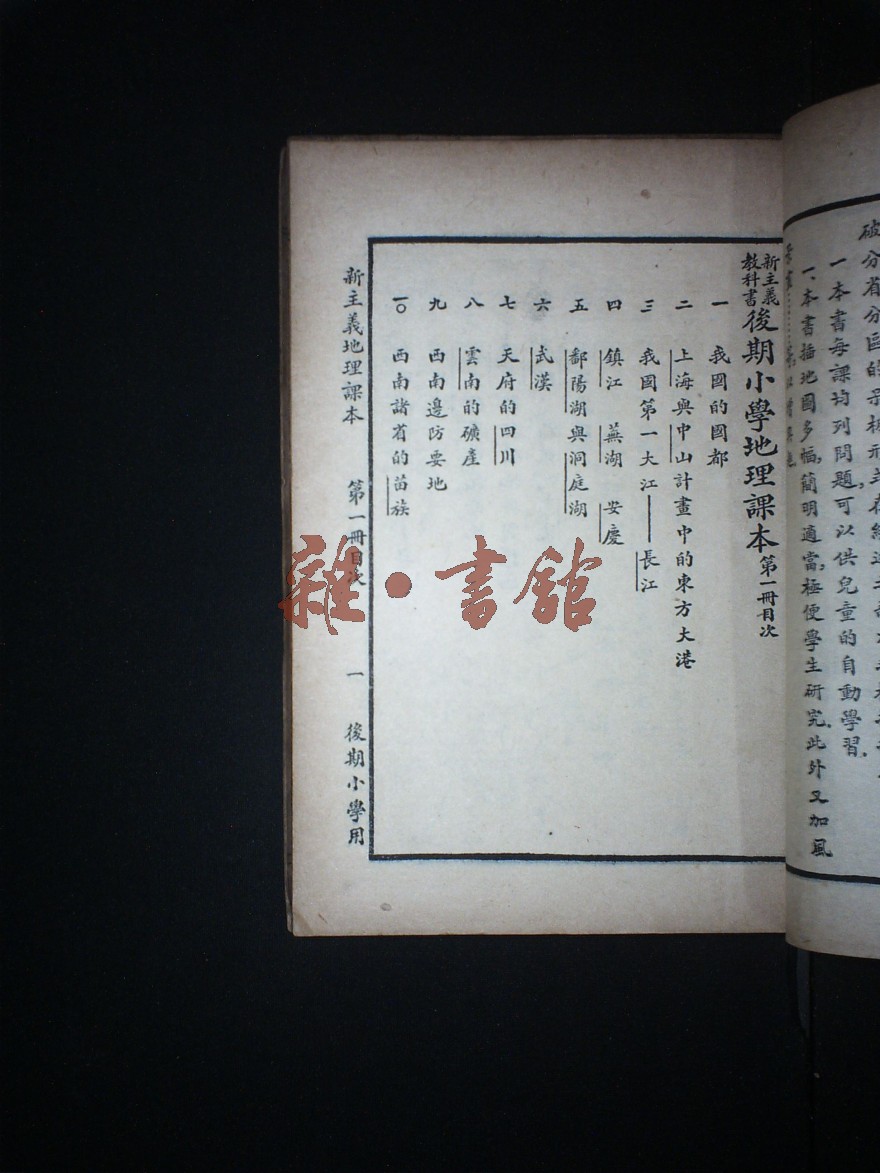 破分省分區的
一本書每課均列問題，可以供兒童的自動學習．
一、本書插地圖多幅，簡明適當，極便學生研究．此外又加風
新主義教科書後期小學地理課本第一冊目次
一 我國的國都
二 上海與中山計畫中的東方大港
三 我國第一大江——長江
四 鎮江 蕪湖 安慶
五 鄱陽湖與洞庭湖
六 武漢
七 天府的四川
八 雲南的礦產
九 西南邊防要地
一〇 西南諸省的苗族
新主義地理課本 第一冊目次 一 後期小學用
雜·書館